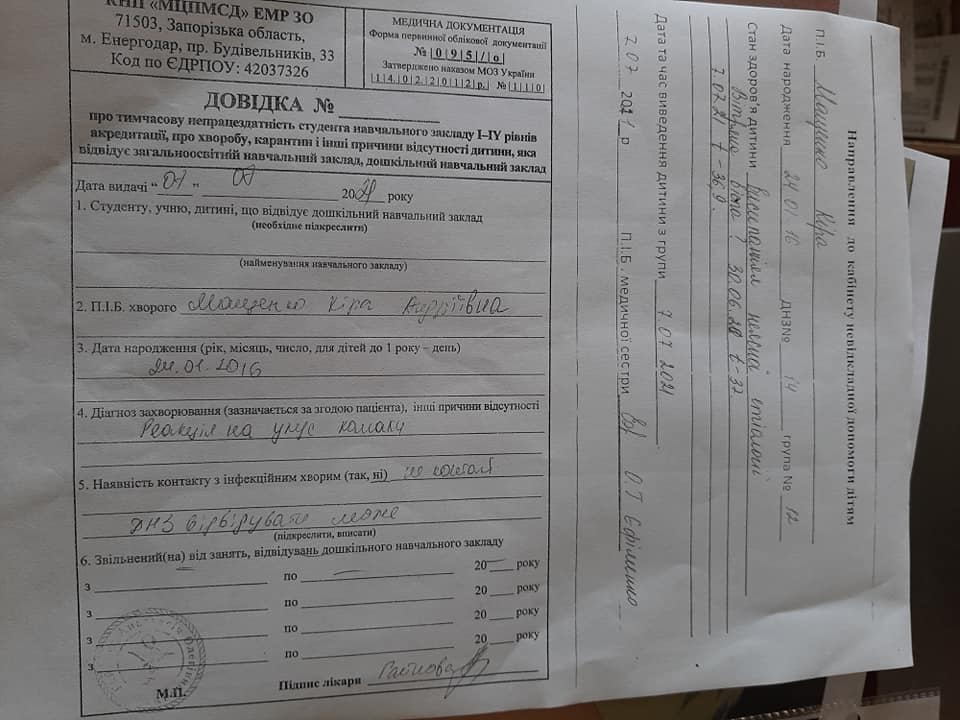 КНП «МЦПМСД» ЕМР ЗО
71503, Запорізька область,
м. Енергодар, пр. Будівельників, 33
Код по ЄДРПОУ: 42037326
МЕДИЧНА ДОКУМЕНТАЦІЯ
Форма первинної облікової документації
№ |0|9|5|/|о|
Затверджено наказом МОЗ України
|1|4|.0|2.2|0|1|2|р. № |1|1|0|
ДОВІДКА № ___
про тимчасову непрацездатність студента навчального закладу I–IY рівнів
акредитації, про хворобу, карантин і інші причини відсутності дитини, яка
відвідує загальноосвітній навчальний заклад, дошкільний навчальний заклад
Дата видачі “ 07 ” 07 2021 року
1. Студенту, учню, дитині, що відвідує дошкільний навчальний заклад
(необхідне підкреслити)
(найменування навчального закладу)
2. П.І.Б. хворого Мащенко Кіра Андріївна
3. Дата народження (рік, місяць, число, для дітей до 1 року – день)
24.01.2016
4. Діагноз захворювання (зазначається за згодою пацієнта), інші причини відсутності
Реакція на укус комахи
5. Наявність контакту з інфекційним хворим (так, ні) не контакт
ДНЗ відвідувати може
(підкреслити, вписати)
6. Звільнений(на) від занять, відвідувань дошкільного навчального закладу
з ___ по ___ 20 ___ року
з ___ по ___ 20 ___ року
з ___ по ___ 20 ___ року
з ___ по ___ 20 ___ року
М.П.
Підпис лікаря
Направлення до кабінету невідкладної допомоги дітям
П.І.Б. Мащенко Кіра
Дата народження 24 01. 16 ДНЗ№ 14 група № 12
Стан здоров'я дитини Висипання неясної етіології
Вітряна віспа ? 30.06.21 t - 37
7.07.21 t - 36,9.
Дата та час виведення дитини з групи 7.07 2021
7.07 2021 р П.І.Б. медичної сестри О Т Єфіменко